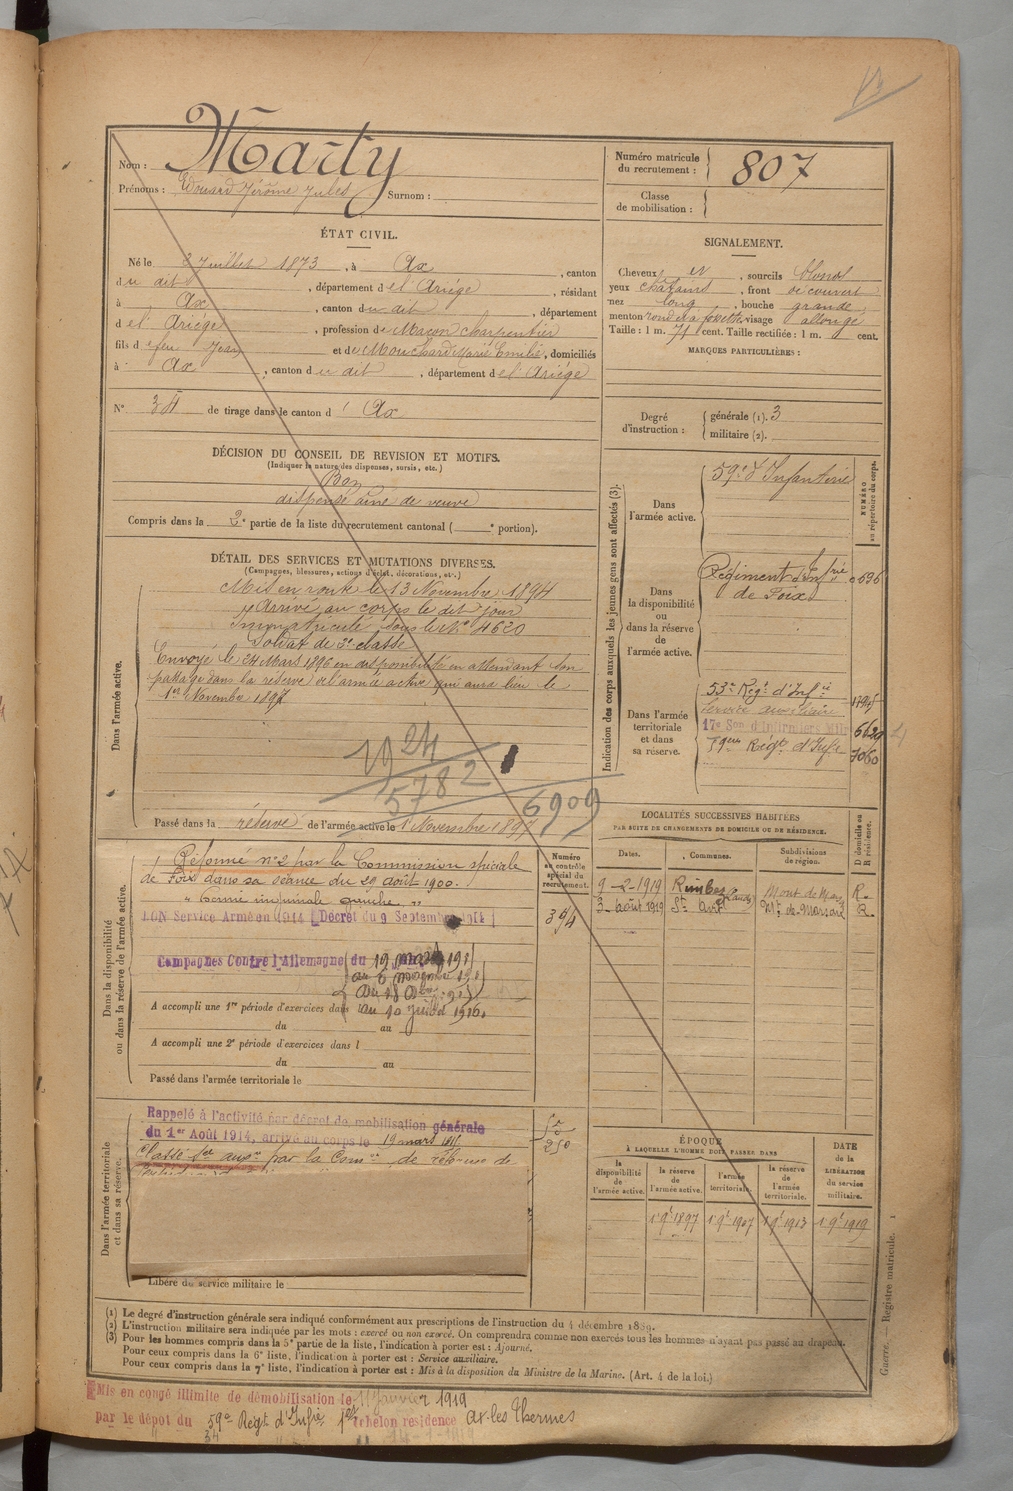 Nom : Marty
Prénoms : Edouard Jérôme Jules Surnom :
Numéro matricule du recrutement : 807
Classe de mobilisation :
ÉTAT CIVIL.
Né le Juillet 1873, à Ax, canton
du dit, département de l'Ariège, résidant
à Ax, canton du dit, département
de l'Ariège, profession de Maçon charpentier
fils de feu Jean et de Mouchard Marie Emilie, domiciliés
à Ax, canton du dit, département de l'Ariège
N° 34 de tirage dans le canton d' Ax
SIGNALEMENT.
Cheveux et, sourcils blonds
yeux châtains, front découvert
nez long, bouche grande
menton rond et à fossette visage allongé
Taille : 1 m. 71 cent. Taille rectifiée : 1 m. cent.
MARQUES PARTICULIÈRES :
Degré d'instruction : générale (1). 3
militaire (2).
DÉCISION DU CONSEIL DE REVISION ET MOTIFS.
(Indiquer la nature des dispenses, sursis, etc.)
Bon
dispensé ainé de veuve
Compris dans la 2e partie de la liste du recrutement cantonal ( e portion).
DÉTAIL DES SERVICES ET MUTATIONS DIVERSES.
(Campagnes, blessures, actions d'éclat, décorations, etc.)
Dans l'armée active.
Mis en route le 13 Novembre 1894
Arrivé au corps le dit jour
Immatriculé sous le No 4620
Soldat de 2e classe
Envoyé le 24 Mars 1896 en disponibilité en attendant son
passage dans la réserve de l'armée active qui aura lieu le
1er Novembre 1897
1924
5782
6909
Passé dans la réserve de l'armée active le 1 Novembre 1897
Indication des corps auxquels les jeunes gens sont affectés (3).
NUMÉRO au répertoire du corps.
Dans l'armée active.
59e d'Infanterie
Dans la disponibilité ou dans la réserve de l'armée active.
Régiment d'Infrie de Foix 0696
Dans l'armée territoriale et dans sa réserve.
53e Regt d'Infie
Service auxiliaire
17e Son d'Infirmiers Mil 6629
59eme Régt d'Infie 7060
LOCALITÉS SUCCESSIVES HABITÉES
PAR SUITE DE CHANGEMENTS DE DOMICILE OU DE RÉSIDENCE.
Dates. Communes. Subdivisions de région. D domicile ou R résidence.
9-2-1919 Rimbez Landes Mont de Mars R.
3 août 1919 St Avit Mt de Marsan R.
Dans la disponibilité ou dans la réserve de l'armée active.
Réformé n°2 par la Commission spéciale
de Foix dans sa séance du 29 août 1900.
" hernie inguinale gauche "
BON Service Armé en 1914 Décret du 9 Septembre 1914
Campagnes Contre l'Allemagne du 19 mars 191
au 10 juillet 1916.
A accompli une 1re période d'exercices dans
du au
A accompli une 2e période d'exercices dans l
du au
Passé dans l'armée territoriale le
Numéro au contrôle spécial du recrutement.
Dans l'armée territoriale et dans sa réserve.
Rappelé à l'activité par décret de mobilisation générale
du 1er Août 1914, arrivé au corps le 19 mars
Classé Sce auxre par la Comon de réforme de
Libéré du service militaire le
ÉPOQUE
À LAQUELLE L'HOMME DOIT PASSER DANS
la disponibilité de l'armée active. la réserve de l'armée active. l'armée territoriale. la réserve de l'armée territoriale.
DATE de la LIBÉRATION du service militaire.
1 9e 1897 1 9e 1907 1 9e 1913 1 9e 1919
(1) Le degré d'instruction générale sera indiqué conformément aux prescriptions de l'instruction du 4 décembre 1889.
(2) L'instruction militaire sera indiquée par les mots : exercé ou non exercé. On comprendra comme non exercés tous les hommes n'ayant pas passé au drapeau.
(3) Pour les hommes compris dans la 5e partie de la liste, l'indication à porter est : Ajourné.
Pour ceux compris dans la 6e liste, l'indication à porter est : Service auxiliaire.
Pour ceux compris dans la 7e liste, l'indication à porter est : Mis à la disposition du Ministre de la Marine. (Art. 4 de la loi.)
Guerre. — Registre matricule. 1
Mis en congé illimité de démobilisation le 11 Janvier 1919
par le dépôt du 59e Régt d'Infrie échelon résidence Ax les Thermes